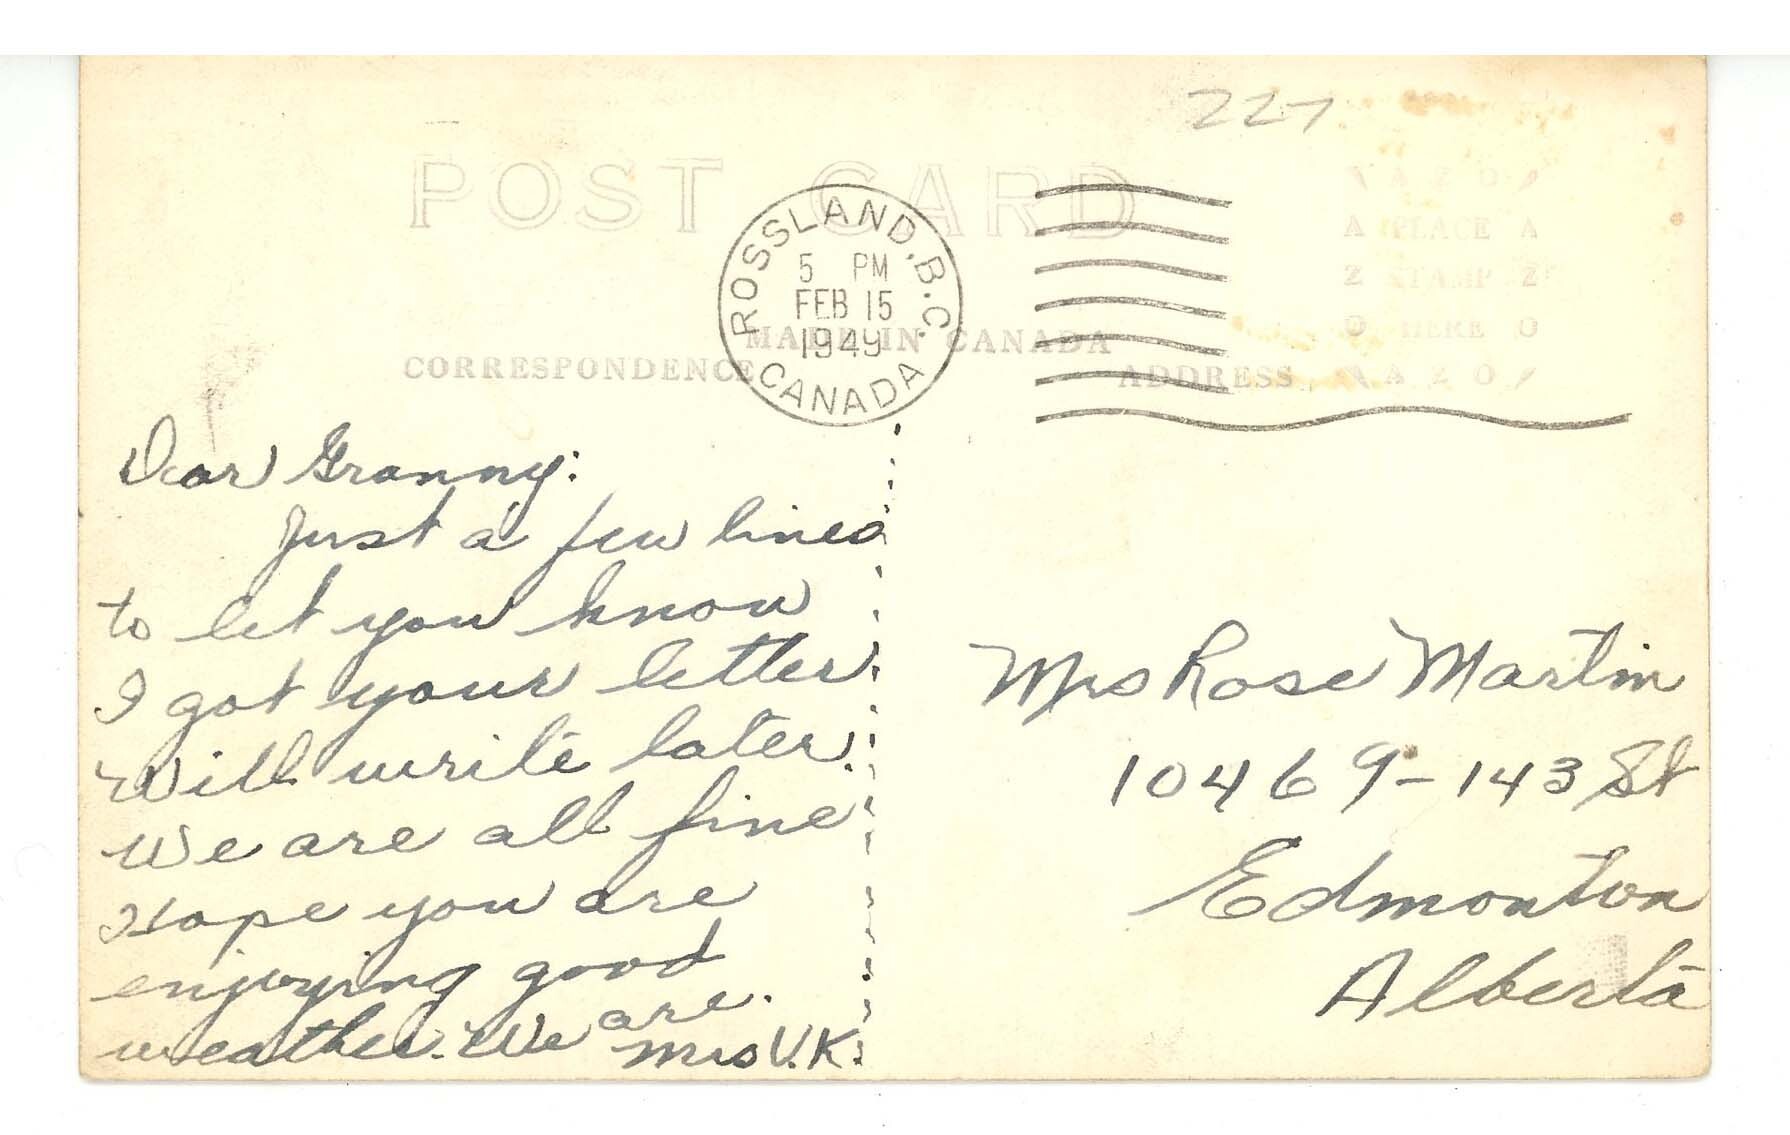 227
POST CARD
ROSSLAND, B.C.
5 PM
FEB 15
1949
CANADA
AZO
A PLACE A
Z STAMP Z
O HERE O
AZO
MADE IN CANADA
CORRESPONDENCE
ADDRESS
Dear Granny:
Just a few lines
to let you know
I got your letter
Will write later.
We are all fine
Hope you are
enjoying good
weather. We are.
Mrs V.K.
Mrs Rose Martin
10469-143 St
Edmonton
Alberta